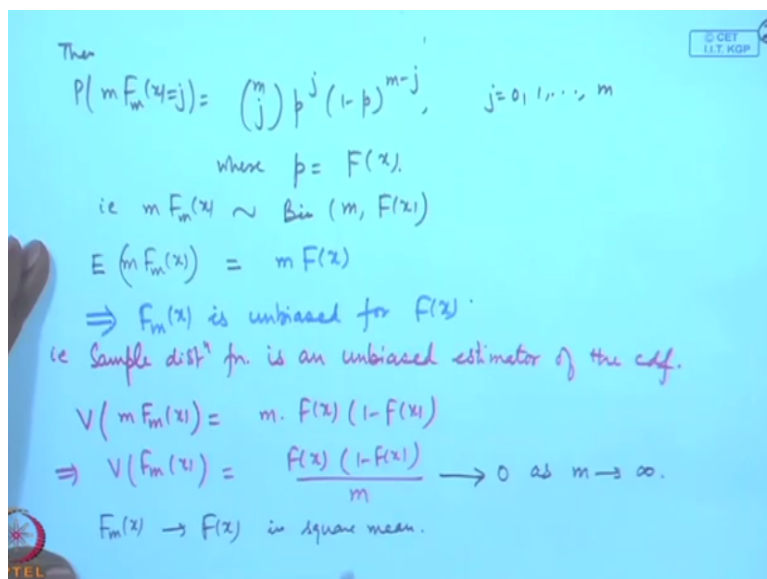 © CET
I.I.T. KGP
Then
P(m Fₘ(x)=j) = (m j) p^j (1-p)^{m-j}, j=0,1,..., m
where p = F(x).
ie m Fₘ(x) ~ Bin (m, F(x))
E (m Fₘ(x)) = m F(x)
⇒ Fₘ(x) is unbiased for F(x).
ie Sample distⁿ fn. is an unbiased estimator of the cdf.
V(m Fₘ(x)) = m. F(x) (1-F(x))
⇒ V(Fₘ(x)) = F(x) (1-F(x)) / m → 0 as m → ∞.
Fₘ(x) → F(x) in square mean.
PTEL